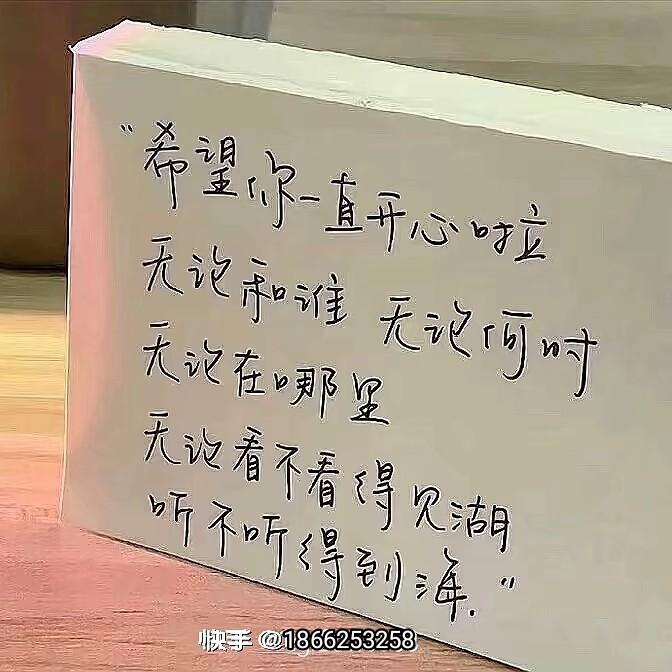 “希望你一直开心啦
无论和谁 无论何时
无论在哪里
无论看不看得见湖
听不听得到海.”
快手 @1866253258